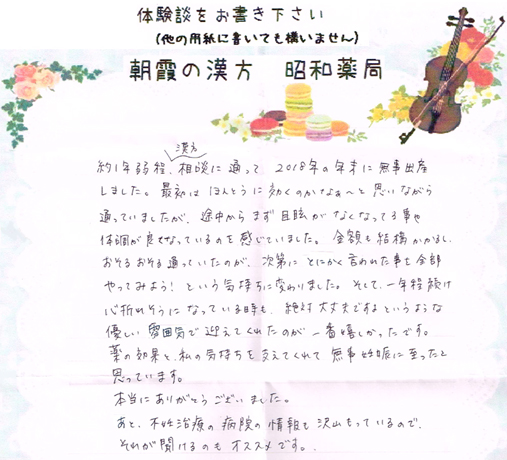 体験談をお書き下さい
(他の用紙に書いても構いません)
朝霞の漢方 昭和薬局
漢方
約1年弱程、相談に通って 2018年の年末に無事出産
しました。最初は ほんとうに効くのかなぁ〜と思いながら
通っていましたが、途中から まず目眩がなくなってる事や
体調が良くなっているのを感じていました。金額も結構かかるし、
おそるおそる通っていたのが、次第に とにかく言われた事を全部
やってみよう! という気持ちに変わりました。そして、一年程続け
心折れそうになっている時も、絶対大丈夫ですよというような
優しい 雰囲気で迎えてくれたのが 一番嬉しかったです。
薬の効果と、私の気持ちを支えてくれて 無事妊娠に至ったと
思っています。
本当にありがとうございました。
あと、不妊治療の病院の情報も沢山もっているので、
それが聞けるのも オススメです。